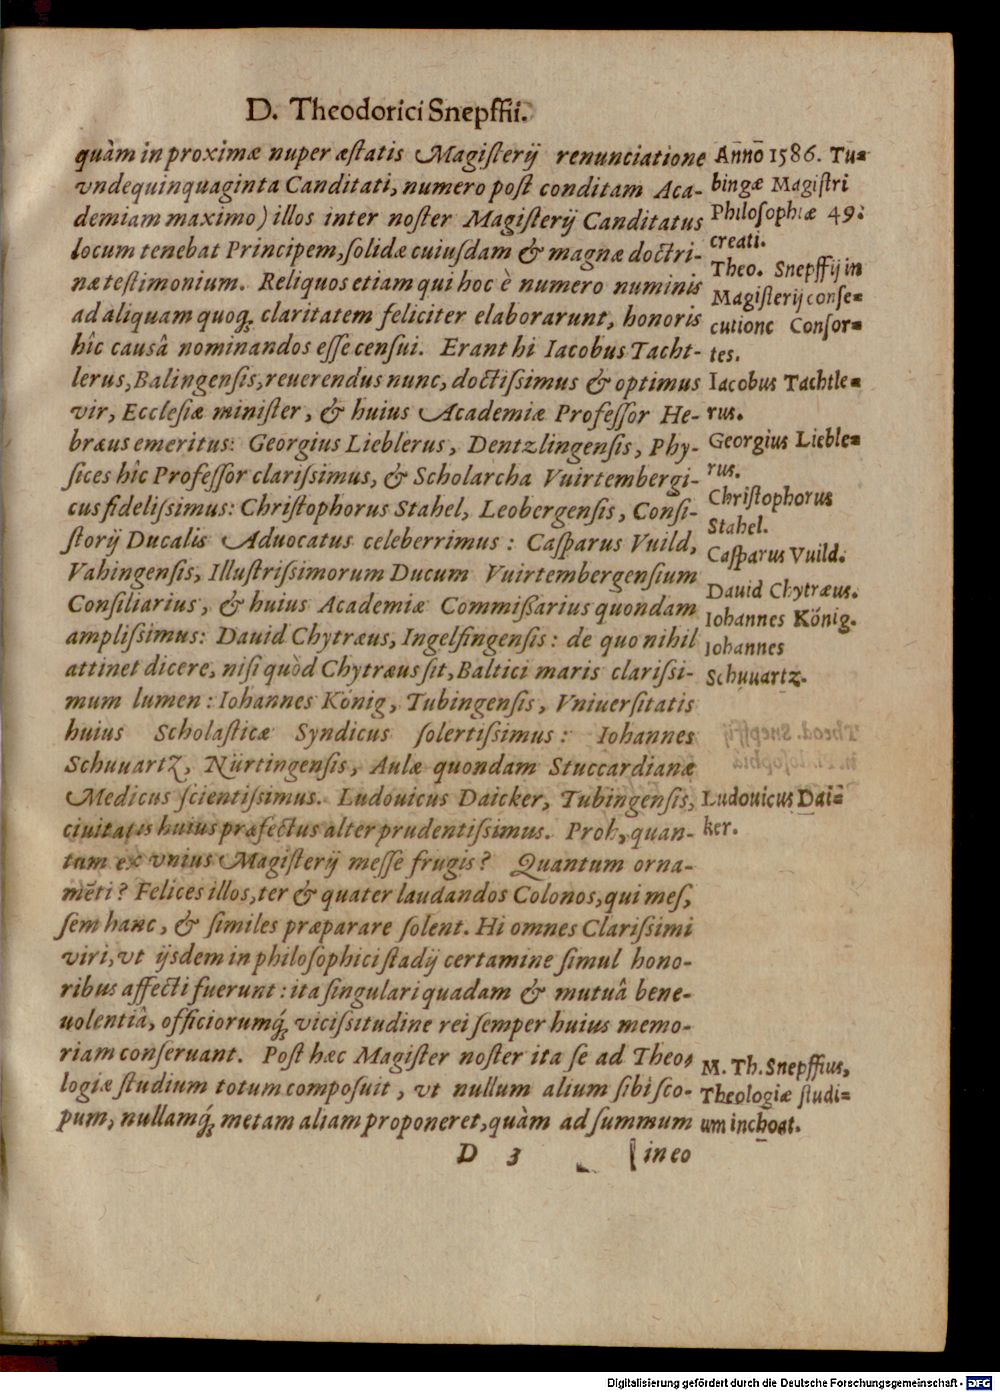 D. Theodorici Snepffii.
quàm in proximæ nuper æstatis Magisterij renunciatione
vndequinquaginta Canditati, numero post conditam Aca-
demiam maximo) illos inter noster Magisterij Canditatus
locum tenebat Principem, solidæ cuiusdam & magnæ doctri-
næ testimonium. Reliquos etiam qui hoc è numero numinis
ad aliquam quoq; claritatem feliciter elaborarunt, honoris
hîc causâ nominandos esse censui. Erant hi Iacobus Tacht-
lerus, Balingensis, reuerendus nunc, doctissimus & optimus
vir, Ecclesiæ minister, & huius Academiæ Professor He-
bræus emeritus: Georgius Lieblerus, Dentzlingensis, Phy-
sices hîc Professor clarissimus, & Scholarcha Vuirtembergi-
cus fidelissimus: Christophorus Stahel, Leobergensis, Consi-
storij Ducalis Aduocatus celeberrimus: Casparus Vuild,
Vahingensis, Illustrissimorum Ducum Vuirtembergensium
Consiliarius, & huius Academiæ Commißarius quondam
amplissimus: Dauid Chytræus, Ingelfingensis: de quo nihil
attinet dicere, nisi quòd Chytræus sit, Baltici maris clarissi-
mum lumen: Iohannes König, Tubingensis, Vniuersitatis
huius Scholasticæ Syndicus solertissimus: Iohannes
Schuuartz, Nürtingensis, Aulæ quondam Stuccardianæ
Medicus scientissimus. Ludouicus Daicker, Tubingensis,
ciuitatis huius præfectus alter prudentissimus. Proh, quan-
tum ex vnius Magisterij messe frugis? Quantum orna-
mēti? Felices illos, ter & quater laudandos Colonos, qui mes,
sem hanc, & similes præparare solent. Hi omnes Clarissimi
viri, vt ijsdem in philosophici stadij certamine simul hono-
ribus affecti fuerunt: ita singulari quadam & mutuâ bene-
uolentiâ, officiorumq́; vicissitudine rei semper huius memo-
riam conseruant. Post hæc Magister noster ita se ad Theo-
logiæ studium totum composuit, vt nullum alium sibi sco-
pum, nullamq́; metam aliam proponeret, quàm ad summum
D 3 in eo
Anno 1586. Tu-
bingæ Magistri
Philosophiæ 49.
creati.
Theo. Snepffij in
Magisterij conse-
cutione Consor-
tes.
Iacobus Tachtle-
rus.
Georgius Lieble-
rus.
Christophorus
Stahel.
Casparus Vuild.
Dauid Chytræus.
Iohannes König.
Iohannes
Schuuartz.
Ludouicus Dai-
ker.
M. Th. Snepffius,
Theologiæ studi-
um inchoat.
Digitalisierung gefördert durch die Deutsche Forschungsgemeinschaft - DFG